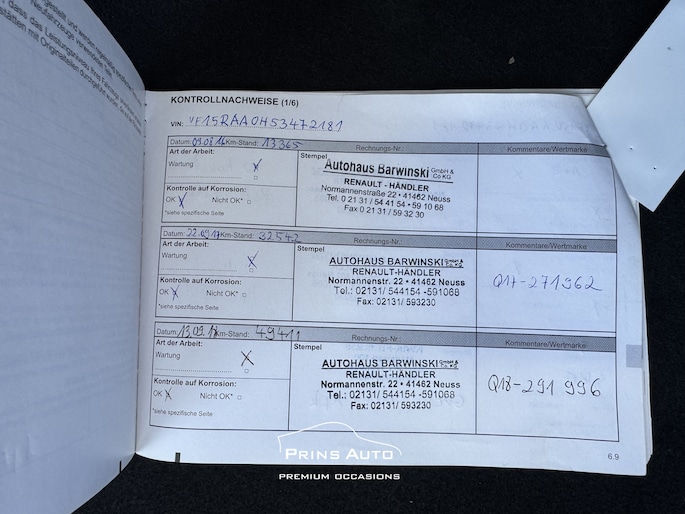 KONTROLLNACHWEISE (1/6)
VIN: VF15RAA0H53472181
Datum: 09.08.16 Km-Stand: 13365 Rechnungs-Nr.: Kommentare/Wertmarke
Art der Arbeit:
Wartung X
Kontrolle auf Korrosion:
OK X Nicht OK* □
*siehe spezifische Seite
Stempel
Autohaus Barwinski GmbH & Co KG
RENAULT - HÄNDLER
Normannenstraße 22 • 41462 Neuss
Tel. 0 21 31 / 54 41 54 • 59 10 68
Fax 0 21 31 / 59 32 30
Datum: 22.09.17 Km-Stand: 32542 Rechnungs-Nr.: Kommentare/Wertmarke
Art der Arbeit:
Wartung X
Kontrolle auf Korrosion:
OK X Nicht OK* □
*siehe spezifische Seite
Stempel
AUTOHAUS BARWINSKI GmbH & Co. KG
RENAULT-HÄNDLER
Normannenstr. 22 • 41462 Neuss
Tel.: 02131/ 544154 -591068
Fax: 02131/ 593230
Q17-271962
Datum: 13.09.18 Km-Stand: 49411 Rechnungs-Nr.: Kommentare/Wertmarke
Art der Arbeit:
Wartung X
Kontrolle auf Korrosion:
OK X Nicht OK* □
*siehe spezifische Seite
Stempel
AUTOHAUS BARWINSKI GmbH & Co. KG
RENAULT-HÄNDLER
Normannenstr. 22 • 41462 Neuss
Tel.: 02131/ 544154 -591068
Fax: 02131/ 593230
Q18-291 996
6.9
PRINS AUTO
PREMIUM OCCASIONS